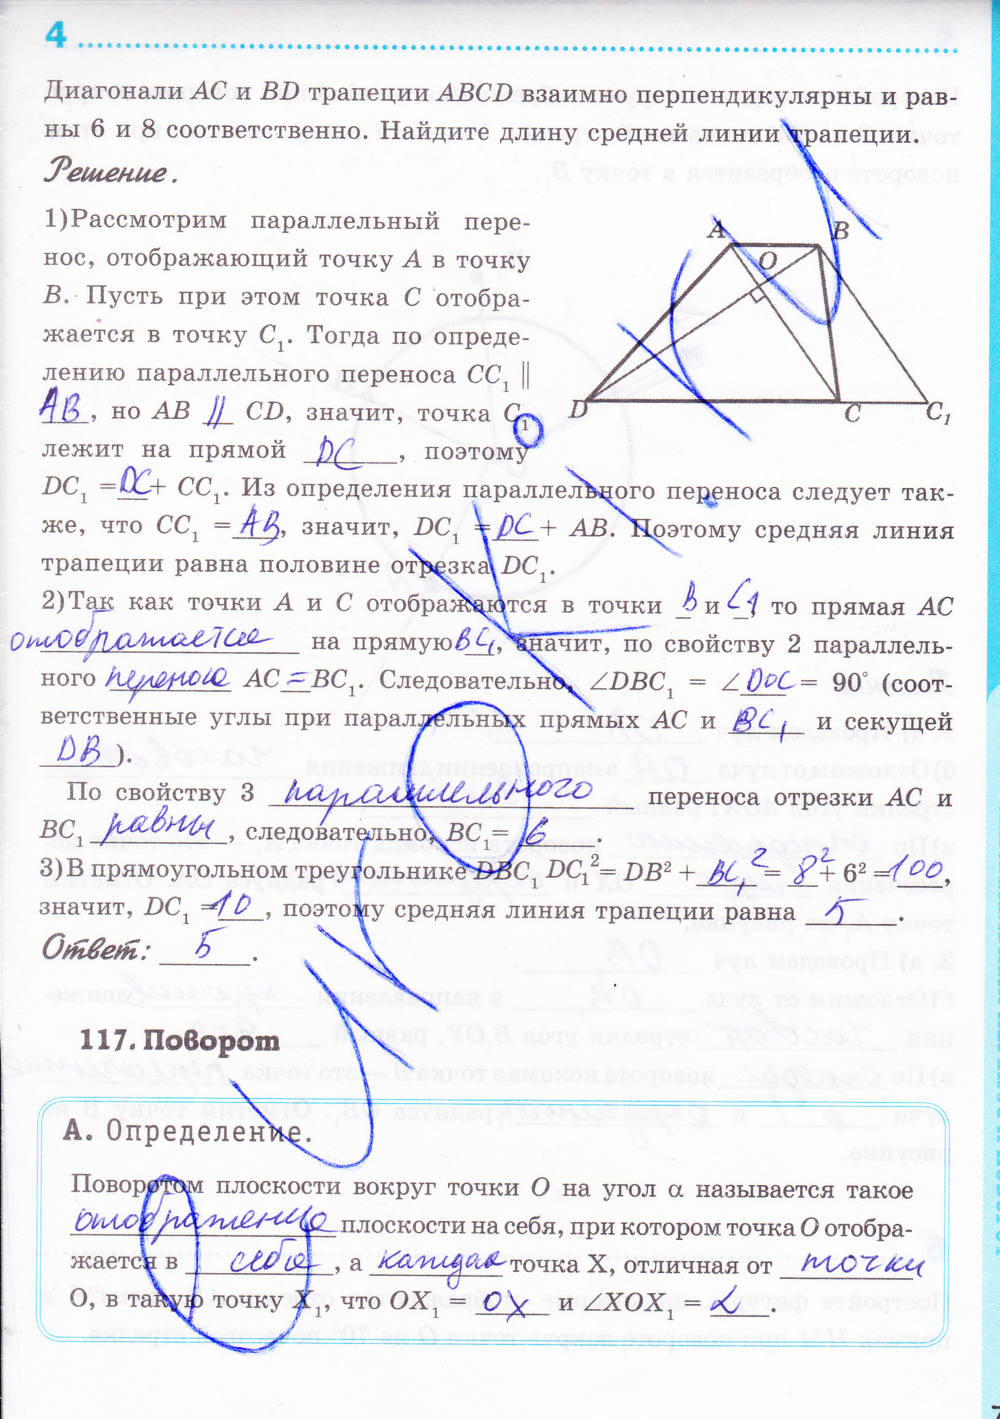 4
Диагонали AC и BD трапеции ABCD взаимно перпендикулярны и рав-
ны 6 и 8 соответственно. Найдите длину средней линии трапеции.
Решение.
1) Рассмотрим параллельный пере-
нос, отображающий точку A в точку
B. Пусть при этом точка C отобра-
жается в точку C₁. Тогда по опреде-
лению параллельного переноса CC₁ ||
AB, но AB || CD, значит, точка C₁
лежит на прямой DC, поэтому
A B
O
D C C₁
DC₁ = DC + CC₁. Из определения параллельного переноса следует так-
же, что CC₁ = AB, значит, DC₁ = DC + AB. Поэтому средняя линия
трапеции равна половине отрезка DC₁.
2) Так как точки A и C отображаются в точки B и C₁ то прямая AC
отображается на прямую BC₁, значит, по свойству 2 параллель-
ного переноса AC = BC₁. Следовательно, ∠DBC₁ = ∠DOC = 90° (соот-
ветственные углы при параллельных прямых AC и BC₁ и секущей
DB).
По свойству 3 параллельного переноса отрезки AC и
BC₁ равны, следовательно, BC₁ = 6.
3) В прямоугольном треугольнике DBC₁ DC₁² = DB² + BC₁² = 8² + 6² = 100,
значит, DC₁ = 10, поэтому средняя линия трапеции равна 5.
Ответ: 5.
117. Поворот
А. Определение.
Поворотом плоскости вокруг точки O на угол α называется такое
отображение плоскости на себя, при котором точка O отобра-
жается в себя, а каждая точка X, отличная от точки
O, в такую точку X₁, что OX₁ = OX и ∠XOX₁ = α.